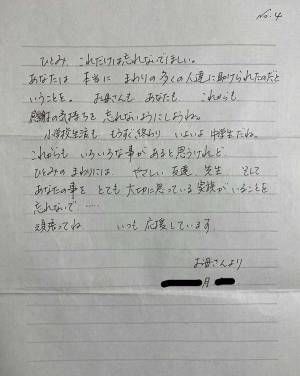 No.4
ひとみ これだけは忘れないでほしい。
あなたは 本当に まわりの多くの人達に助けられたのだと
いうことを。 お母さんも あなたも これからも
感謝の気持ちを 忘れないようにしようね。
小学校生活も もうすぐ終わり いよいよ 中学生だね。
これからも いろいろな事が あると思うけれど
ひとみのまわりには やさしい 友達 先生 そして
あなたの事を とても 大切に思っている 家族がいることを
忘れないで ‥‥‥
頑張ってね いつも 応援しています
お母さんより
月